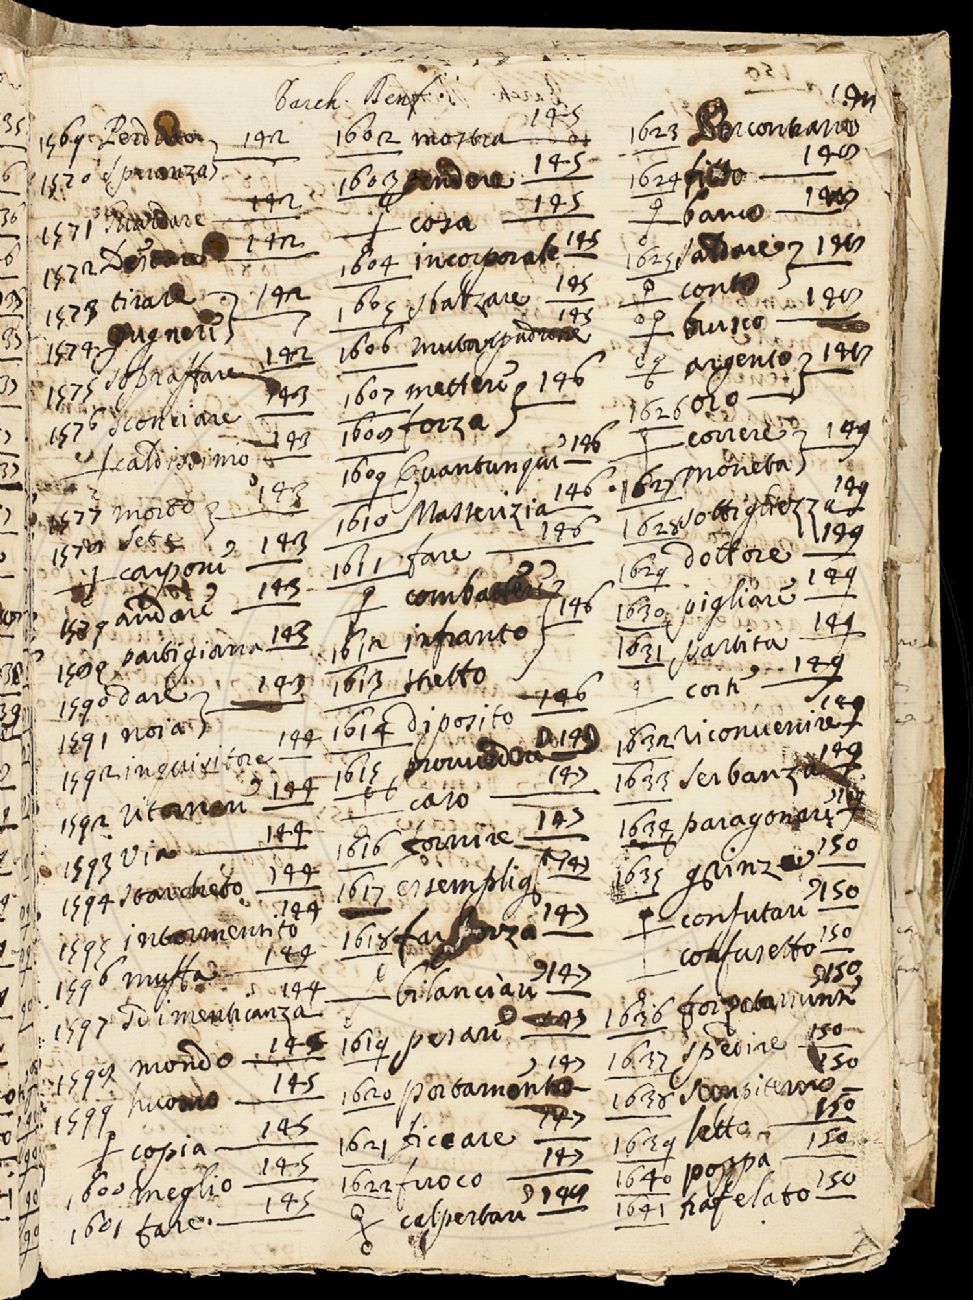 1569 Perduta
1570 speranza 142
1571 Guardare 142
1572 Destare 142
1573 tirare
1574 pugneri 142
1575 sopraffare 142
1576 sconciare 143
caldissimo 143
1577 morto 143
1578 sete
carponi 143
1579 andare 143
1589 partigiana 143
1590 dare
1591 noia 143
1592 inquisitore 144
1592 ritornari 144
1593 via 144
1594 
1595 intormentito 144
1596 muffa 144
1597 dimenticanza 144
1598 mondo 145
1599 huomo 145
copia 145
1600 meglio 145
1601 fare 145
1602 mostra 145
1603 rendere 145
cosa 145
1604 incorporale 145
1605 sbalzare 145
1606 145
1607 mettere
1608 forza 146
1609 Quantunque 146
1610 Masserizia 146
1611 fare 146
combattere
1612 infranto 146
1613 stretto
1614 diposito 146
1615 147
caso 147
1616 fornire 147
1617 essemplig 147
1618 far forza 147
bilanciari 147
1619 pesari 147
1620 portamento 147
1621 ficcare 147
1622 fuoco 147
calpestari 148
1623 Riscontrarvo
1624 fitto 148
banco 148
1625 saldare
conto 148
brusco 148
argento
1626 oro 148
correre
1627 moneta 149
1628 sottigliezza 149
1629 dottore 149
1630 pigliare 149
1631 partita 149
corti 149
1632 riconvenire 149
1633 serbanza 149
1634 paragonari 149
1635 grinze 150
confutari 150
confusetto 150
1636 forzatamente 150
1637 spedire 150
1638 150
1639 letto 150
1640 poppa 150
1641 trafelato 150